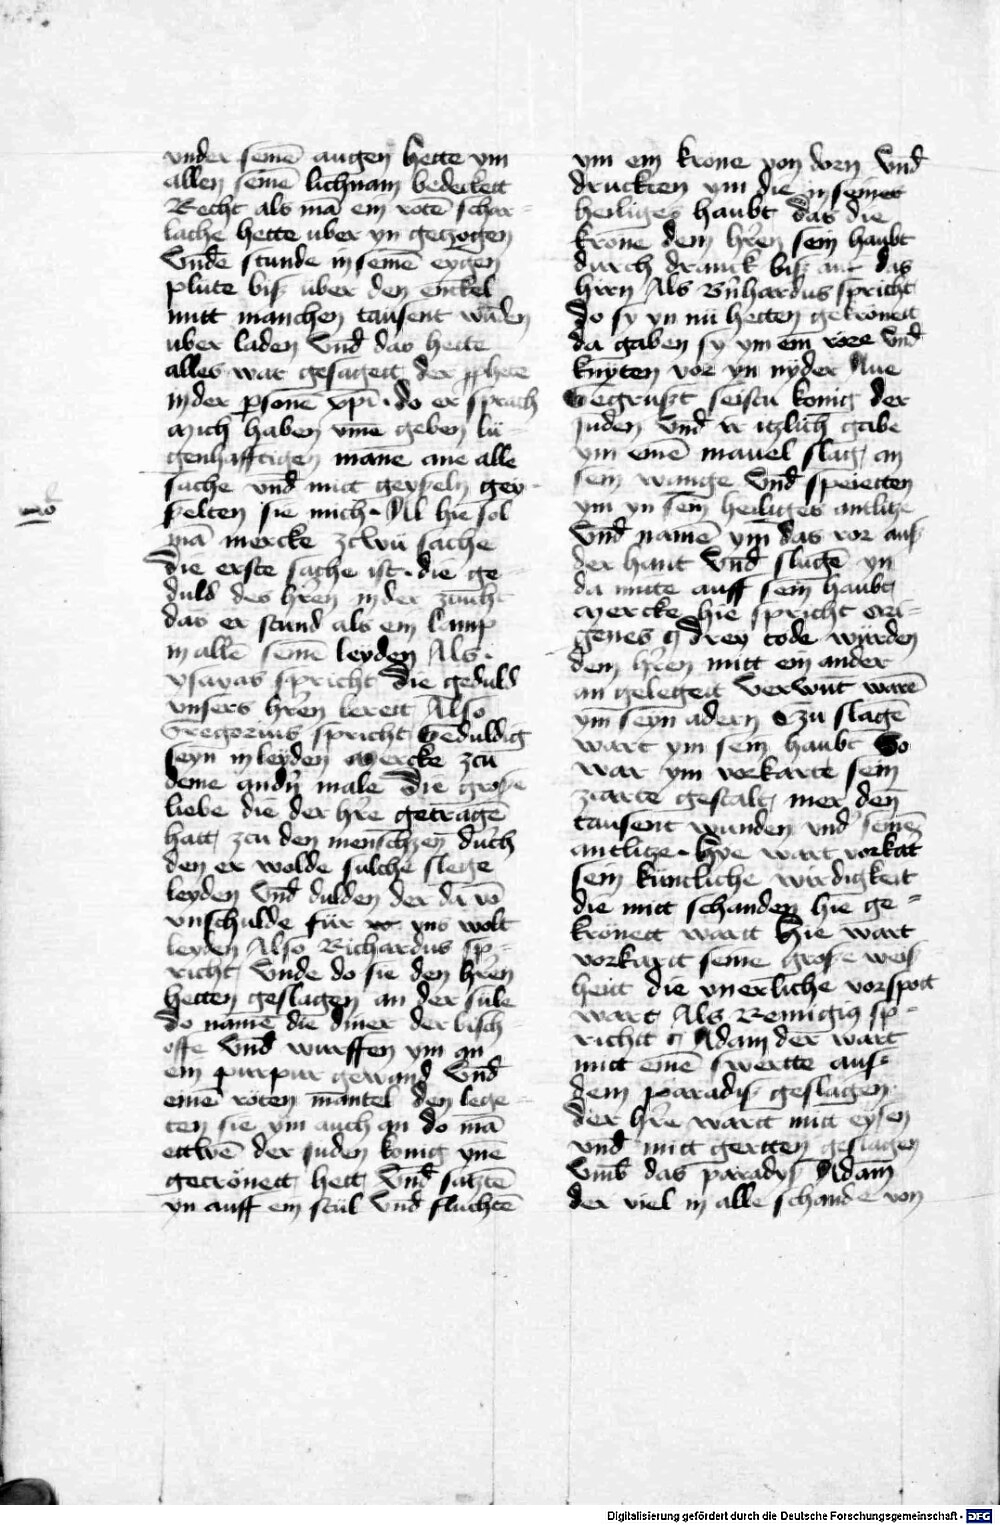 vnder seinē augen hette vm
allen seinē lichnam bedeckett
Recht als mā ein rotē schar-
lache hette uber yn geczogen
Vnde stunde in seinē eygen
plute biß uber den enckel
mitt manchen tausent wūden
uber laden Vnd das hette
alles war gesagett der pphete
in der psonē xpi · do er sprach
Mich haben vme geben lu-
genhafftigen mane ane alle
sache vnd mitt geyseln gey-
selten sie mich · Al hie sol
mā mercke zcwu sache
Die erste sache ist · die ge-
duld des hren in der zucht
das er stund als ein lamp
in allē seinē leyden Als ·
ysayas spricht Die geduld
vnsers hren bereit Also
Gregorius spricht Geduldig
seyn in leyden Mercke zcu
deme andn male die große
liebe die der hre getragē
hatt zcu den menschzen durch
den er wolde sulche slege
leyden Vnd dulden der da vō
vnschulde für vns wolt
leyden Also Richardus sp-
richt Vnde do sie den hren
hetten geslagen an der sule
do namē die diner der bisch-
offe Vnd wurffen ym an
ein purpur gewand Vnd
einē roten mantel den lege-
ten sie ym auch an do mā
ettwē der juden konig ynē
gecrönett hett Vnd satztē
yn auff ein stul Vnd fluchtē
ym ein krone von dorn Vnd
druckten ym die in seines
heiliges haubt das die
krone dem hren sein haubt
durch dranck biß auf das
hirn Als Bnhardus spricht
do sy yn nü hetten gekrönett
da gaben sy ym ein rore Vnd
knyten vor yn nyder Aue
Gegrußt seistu konig der
Juden Vnd ir itzlich gabe
ym einē mauel slag an
sein wange Vnd speietten
ym yn sein heiliges antlitze
Vnd namē ym das ror auß
der hant Vnd slugē yn
da mitte auff sein haubt
Mercke hie spricht Ori-
genes drey tode würden
dem hren mitt ein ander
an gelegett Verwūt warē
ym seyn adern Czu slagē
wart ym sein haubt So
war ym vorkarte sein
zcarte gestalt mer den
tausent wunden vnd seinē
antlitze · Hye wart vorkat
sein küntliche wirdigkeit
die mitt schanden hie ge-
krönett wartt Hie wart
vorkartt seine große weiß
heitt die vnerliche vorspott
wart Als Remigius sp-
richtt Adam der wart
mitt einē swertte auß
dem paradiß geslagen
der hre wartt mitt eysen
vnd mitt gertten geslagen
Vmb das paradyß Adam
der viel in alle schande von
Digitalisierung gefördert durch die Deutsche Forschungsgemeinschaft - DFG